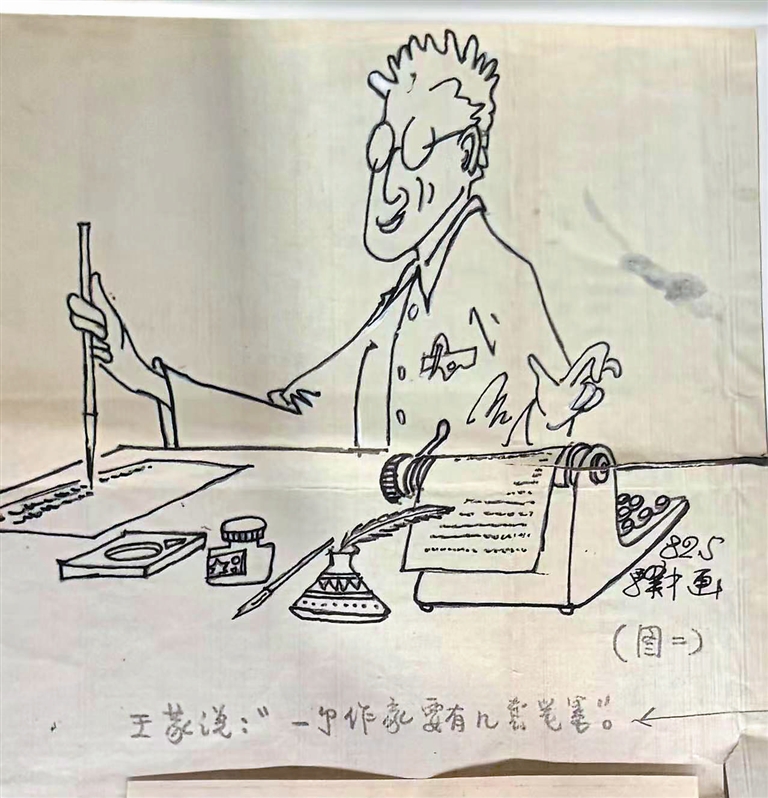 82.5
画
(图二)
王蒙说:“一个作家要有几套笔墨”。